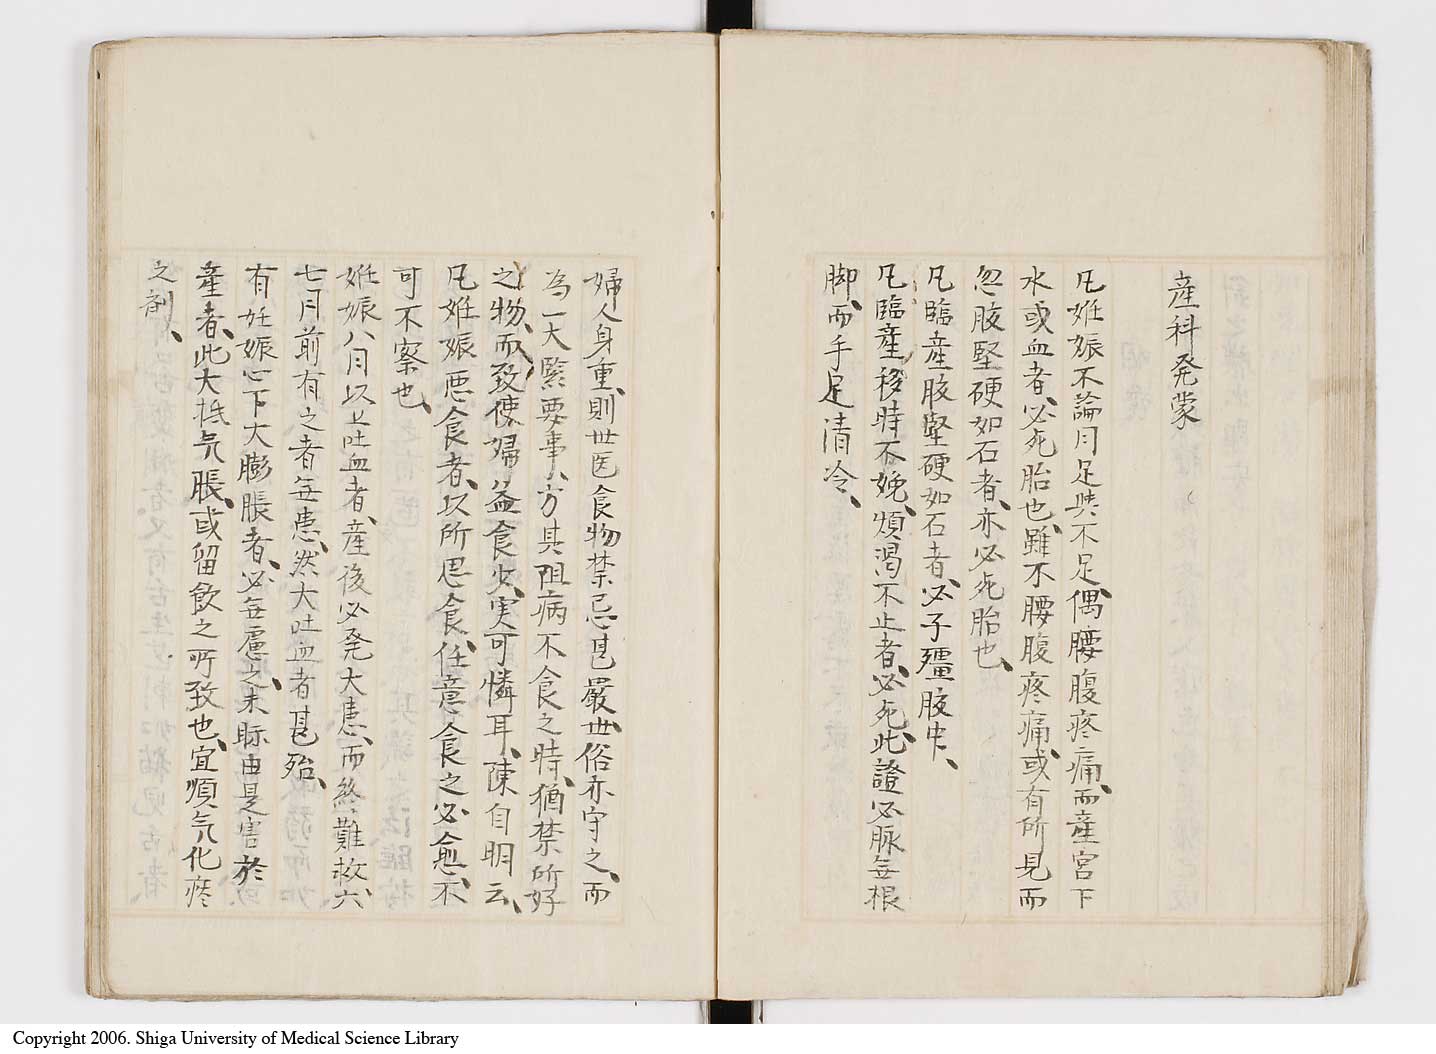 産科発蒙
凡姙娠不論月足與不足、偶腰腹疼痛、而産宮下
水或血者、必死胎也、雖不腰腹疼痛、或有所見而
忽肢堅硬如石者、亦必死胎也、
凡臨産肢堅硬如石者、必子殭肢中、
凡臨産移時不娩、煩渇不止者、必死、此證必脈毎根
脚、而手足清冷、
婦人身重、則世医食物禁忌甚嚴、世俗亦守之、而
為一大緊要事、方其阻病不食之時、猶禁所好
之物、而致使婦益食少、実可憐耳、陳自明云、
凡姙娠悪食者、以所思食、任意食之必愈、不
可不察也、
姙娠八月以上吐血者、産後必発大患、而終難救、六
七月前有之者毎患、然大吐血者甚殆、
有妊娠心下大膨脹者、必毎慮之、未聞由是害於
産者、此大抵気脹、或留飲之所致也、宜順気化痰
之剤、
Copyright 2006. Shiga University of Medical Science Library